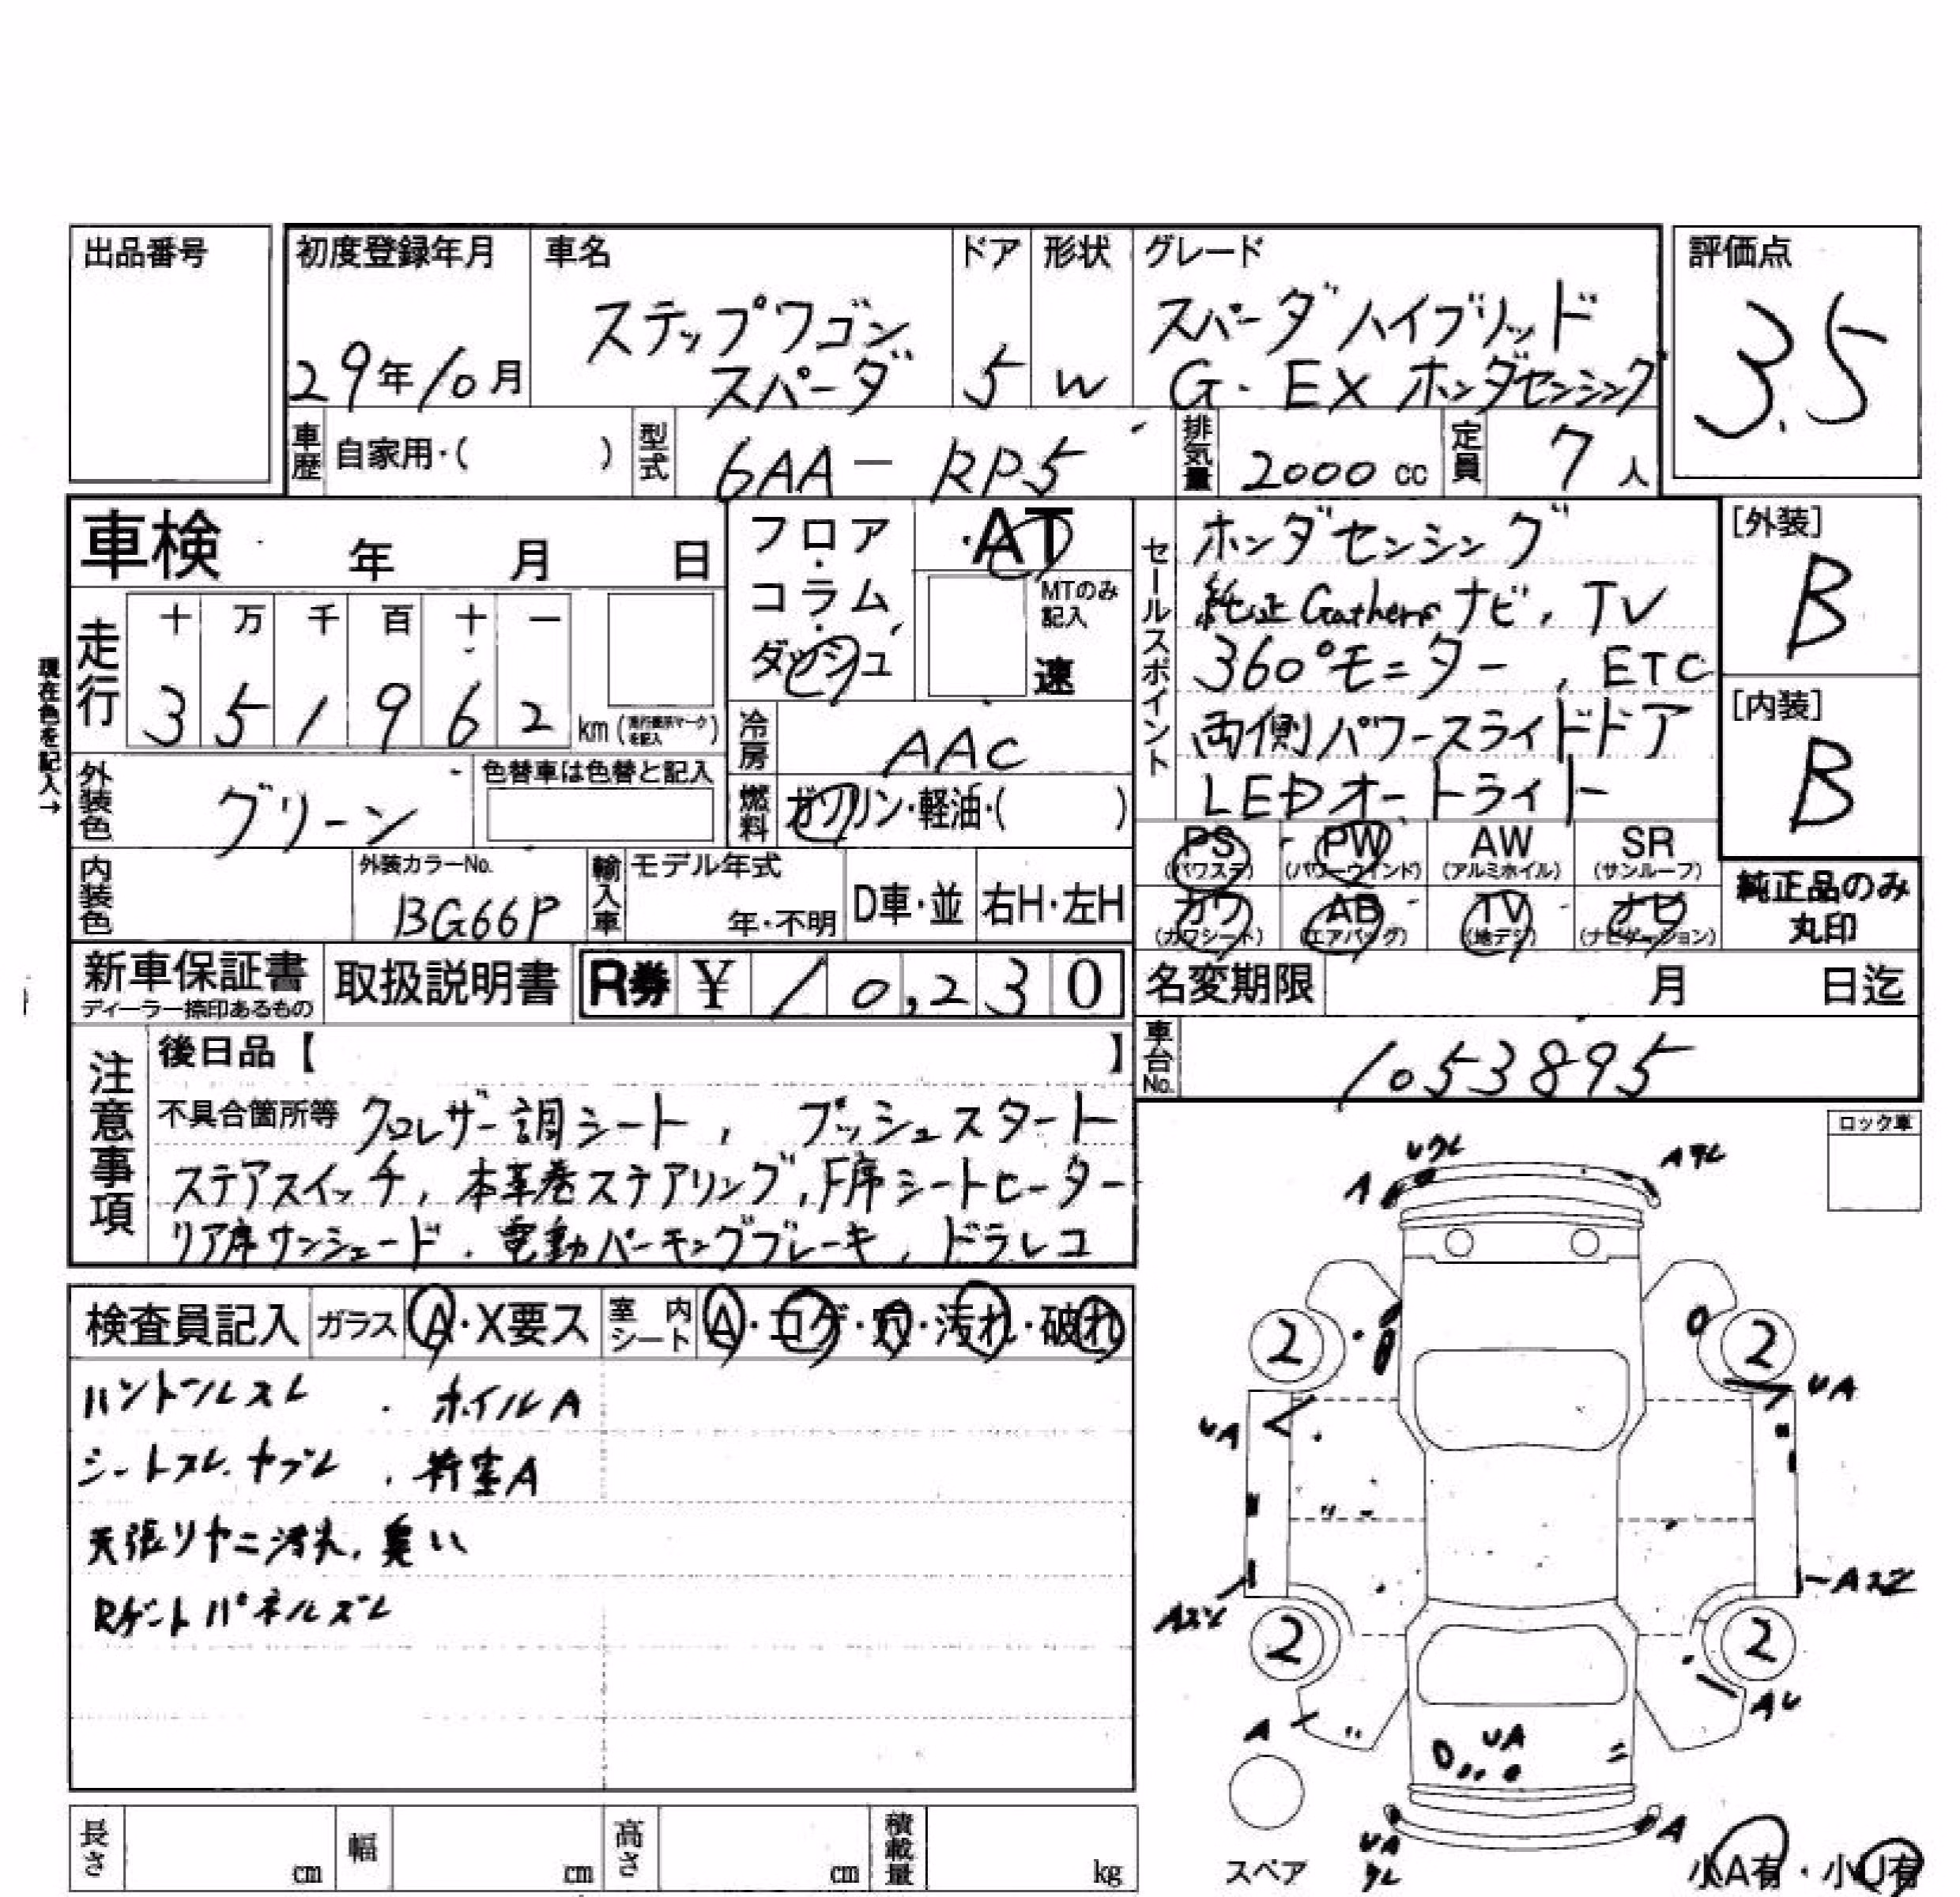 出品番号
初度登録年月
29年10月
車名
ステップワゴン
スパーダ
ドア
5
形状
W
グレード
スパーダハイブリッド
G・EX ホンダセンシング
評価点
3.5
車歴 自家用・( )
型式 6AA-RP5
排気量 2000 cc
定員 7 人
車検 年 月 日
フロア・コラム・ダッシュ
・AT
MTのみ記入
速
走行
十 万 千 百 十 一
3 5 1 9 6 2 km (走行表示マークを記入)
現在色を記入→
冷房 AAC
燃料 ガソリン・軽油・( )
外装色 グリーン
色替車は色替と記入
内装色
外装カラーNo.
BG66P
輸入車
モデル年式
年・不明
D車・並
右H・左H
セールスポイント
ホンダセンシング
純正Gathersナビ、TV
360°モニター、ETC
両側パワースライドドア
LEDオートライト
[外装]
B
[内装]
B
PS (パワステ)
PW (パワーウインド)
AW (アルミホイル)
SR (サンルーフ)
カワ (カワシート)
AB (エアバッグ)
TV (地デジ)
ナビ (ナビゲーション)
純正品のみ
丸印
新車保証書
ディーラー捺印あるもの
取扱説明書
R券 ¥ 10,230
名変期限 月 日迄
車台No. 1053895
注意事項
後日品【 】
不具合箇所等 クロレザー調シート、プッシュスタート
ステアスイッチ、本革巻ステアリング、F席シートヒーター
リア席サンシェード、電動パーキングブレーキ、ドラレコ
ロック車
検査員記入
ガラス A・X要ス
室内シート A・コゲ・穴・汚れ・破れ
ハンドルスレ ・ ホイルA
シートスレ、ヤブレ ・ 荷室A
天張りヤニ汚れ、臭い
Rゲートパネルズレ
A
Uワレ
Aヲレ
2
2
UA
UA
Aスレ
2
2
AU
A
UA
UA
A
スペア
小A有・小U有
長さ cm
幅 cm
高さ cm
積載量 kg